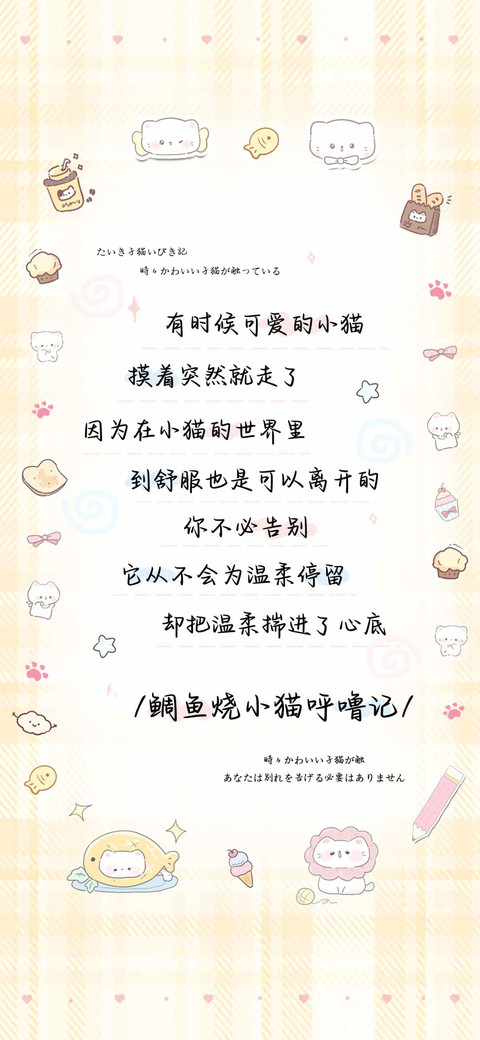 たいき子猫いびき記
時々かわいい子猫が触っている
有时候可爱的小猫
摸着突然就走了
因为在小猫的世界里
到舒服也是可以离开的
你不必告别
它从不会为温柔停留
却把温柔揣进了心底
/鲷鱼烧小猫呼噜记/
時々かわいい子猫が触
あなたは別れを告げる必要はありません